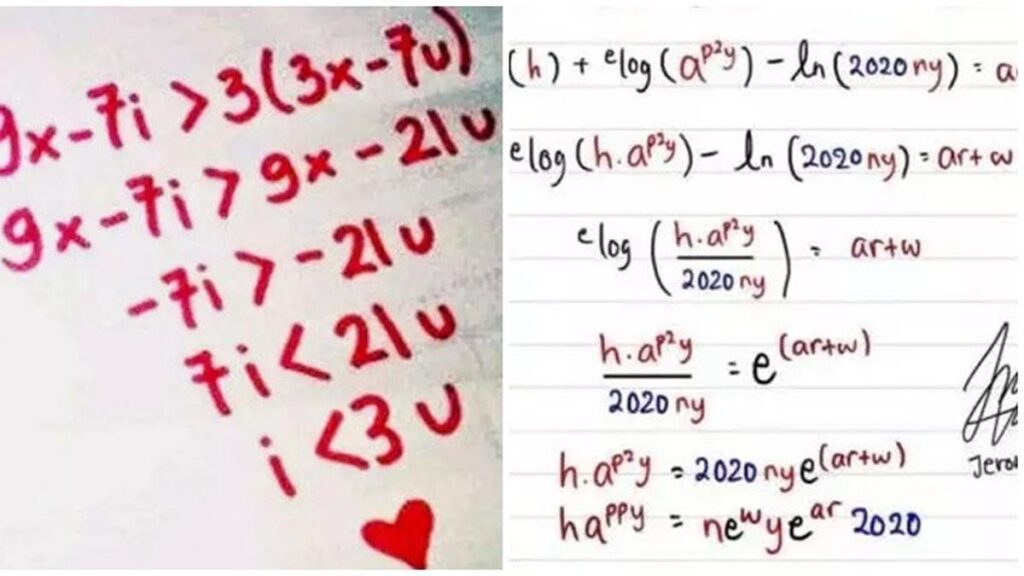 9x-7i > 3(3x-7u)
9x-7i > 9x-21u
-7i > -21u
7i < 21u
i <3 u
(h) + ᵉlog(a^p²y) - ln(2020ny) = a
ᵉlog(h.a^p²y) - ln(2020ny) = ar+w
ᵉlog(h.a^p²y / 2020ny) = ar+w
h.a^p²y / 2020ny = e^(ar+w)
h.a^p²y = 2020nye^(ar+w)
ha^ppy = ne^wye^ar 2020